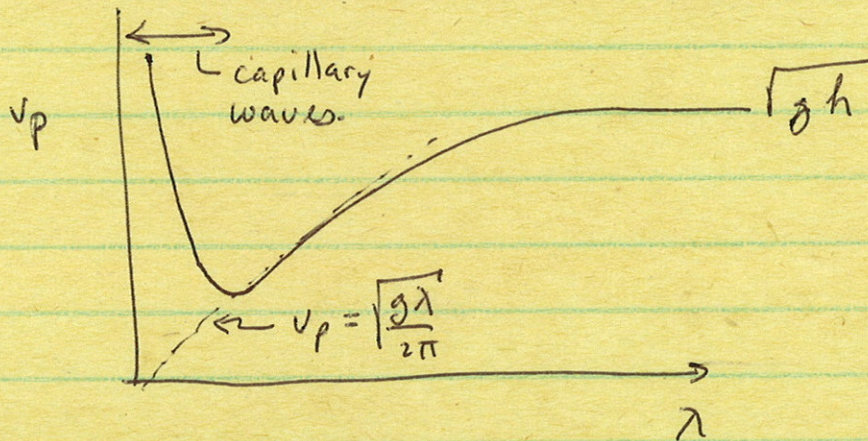 capillary
waves.
v_p
√gh
v_p = √(gλ/2π)
λ